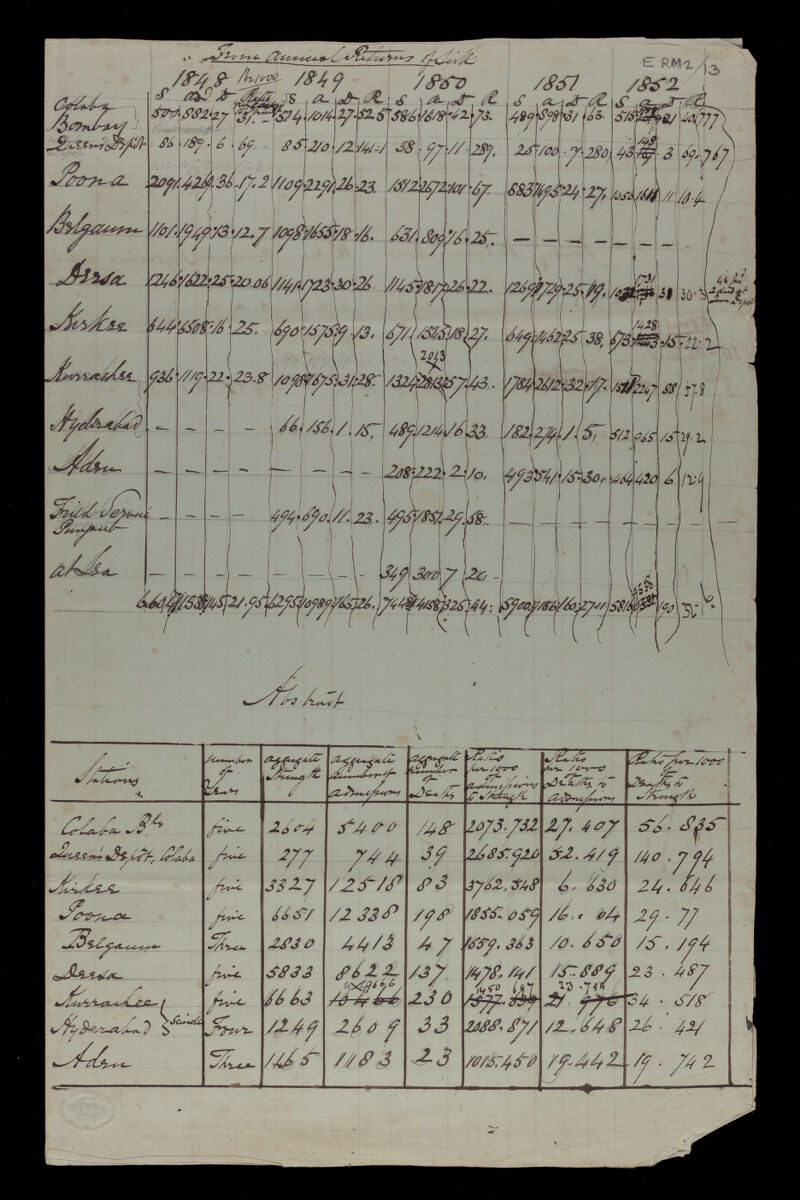 From Annual Returns of Sick
E RM2/13
1848 Per 1000 1849 1850 1851 1852
S ad D S a D R S a D R S a D R S a D R
Colaba
Bombay 500 882 27 514 1014 27 52.5 586 1618 42 73 489 898 31 63 515
Queens Depôt 86 189 6 69 85 210 12 141 38 97 11 289 25 100 7 280 43 148 3 69.767
Poona 2091 4269 36 17.2 1109 2291 26 23 1512 2672 101 67 883 1495 24 27 1056 11 10.4
Belgaum 1101 1949 13 12.7 1098 1655 18 16 631 809 16 25 — — — — — — — —
Deesa 1246 1622 25 20.06 1141 1723 30 26 1145 1817 26 22 1269 1729 25 19 1731 31 30.3
Kirkee 644 6508 16 25 690 1575 9 13 671 1545 18 27 649 1462 25 38 673 1428 15 22.2
2013
Kurrachee 936 1119 22 23.8 1098 1675 31 28 1324 57 43 1784 2612 32 17 2247 88 57.8
Hyderabad — — — — 66 156 1 15 489 1214 16 33 182 274 1 5 512 965 15 29.2
Aden — — — — — — — — 208 222 2 10 493 541 15 30 464 420 6 12.9
Field Service
Punjaub — — — — 494 690 11 23 495 1851 29 58 — — — — — — — —
at Sea — — — — — — — — 349 300 7 20
6604 11538 145 21.95 6295 10989 165 26 7448 14158 325 44 5900 9186 160 27.11 5816 190 32
Abstract
Stations number of Years aggregate Strength aggregate number of admissions aggregate number of Deaths Ratio per 1000 of admissions to Strength Ratio per 1000 Deaths to admissions Ratio per 1000 of Deaths to Strength
Colaba Bks five 2604 5400 148 2073.732 27.407 56.835
Queen's Depôt, Colaba five 277 744 39 2685.920 52.419 140.794
Kirkee five 3327 12518 83 3762.548 6.630 24.646
Poona five 6651 12338 198 1855.059 16.04 29.77
Belgaum Three 2830 4413 47 1659.363 10.650 15.194
Deesa five 5833 8622 137 1478.141 15.889 23.487
9666 1450 697 23.794
Kurrachee five 6663 10466 230 1577.539 21.976 34.518
Hyderabad Scinde Four 1249 2609 33 2088.871 12.648 26.421
Aden Three 1165 1183 23 1015.450 19.442 19.742